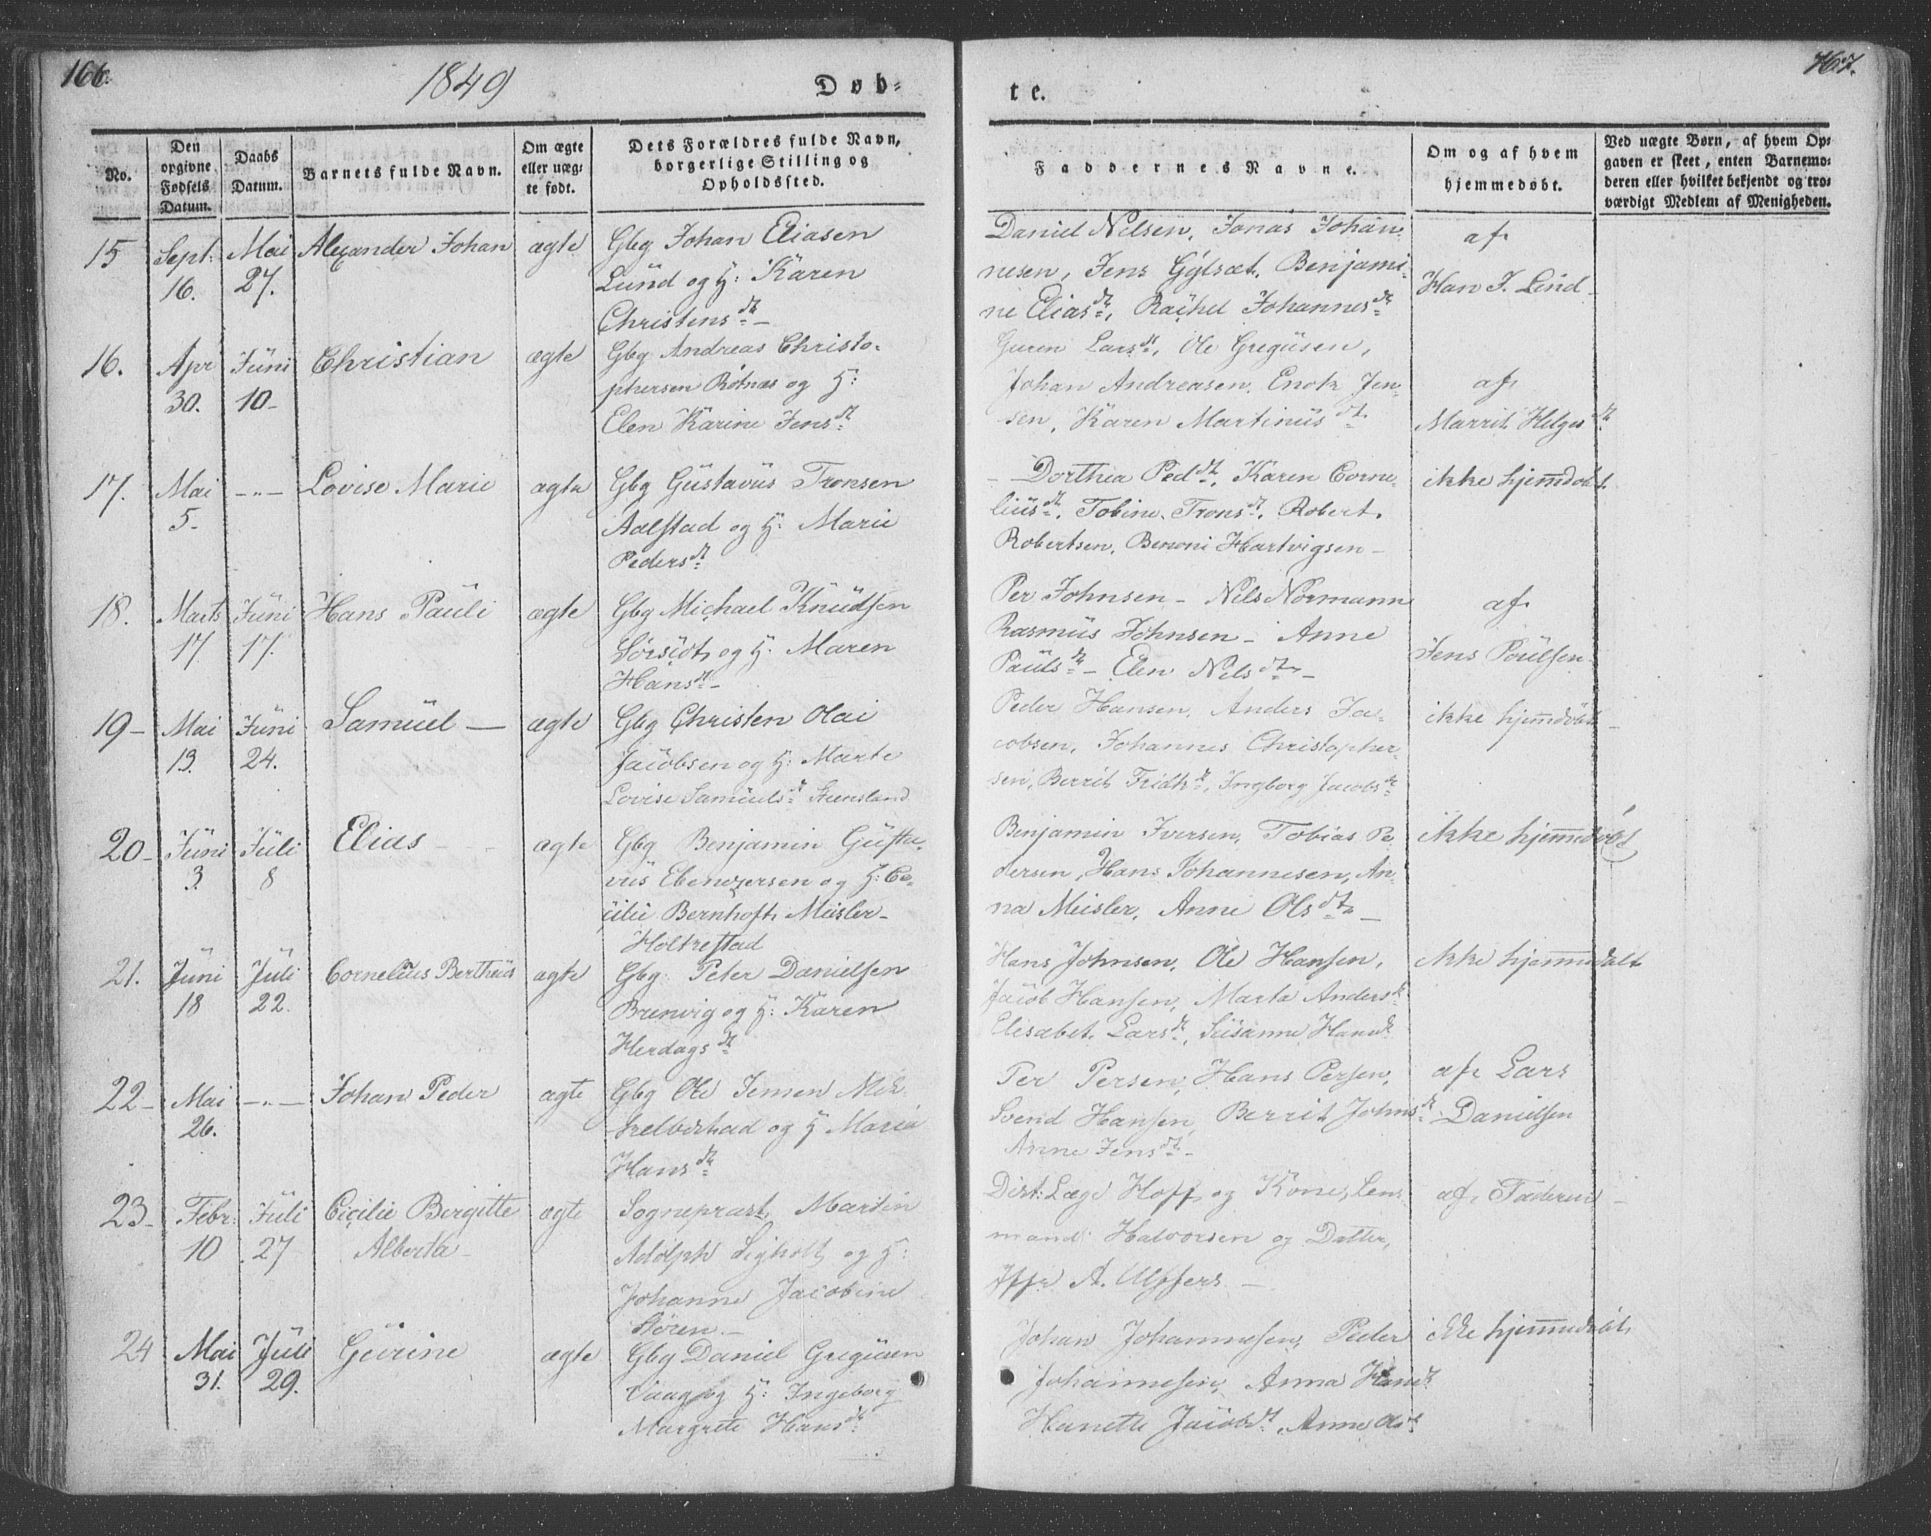 166.
1849
Døb-
te.
167.
No.
Den opgivne Fødsels Datum.
Daabs Datum.
Barnets fulde Navn.
Om ægte eller uægte født.
Dets Forældres fulde Navn, borgerlige Stilling og Opholdssted.
Faddernes Navne.
Om og af hvem hjemmedøbt.
Ved uægte Børn, af hvem Opgaven er skeet, enten Barnemoderen eller hvilket bekjendt og troværdigt Medlem af Menigheden.
15 Sept: 16. Mai 27. Alexander Johan ægte
Gbg Johan Eliasen
Lund og H: Karen
Christensdt –
Daniel Nilsen, Jonas Johan-
nesen, Jens Gylsæt, Benjami-
ne Eliasdt, Rachel Johannesdt
af
Han J. Lind
16. Apr 30. Juni 10 – Christian ægte
Gbg Andreas Christo-
phersen Rötnæs og H:
Elen Karine Jensdt
Guren Larsdt, Ole Gregusen,
Johan Andreasen, Enok Jen-
sen, Karen Martinusdt
af
Marrit Helgesdt
17. Mai 5. –"– Lovise Marie ægte
Gbg Gustavus Tronsen
Aalstad og H: Marie
Pedersdt
– Dorthea Peddt, Karen Corne-
liusdt, Tobine Tronsdt, Robert
Robertsen, Benoni Hartvigsen –
ikke hjemdøbt
18. Marts 17. Juni 17. Hans Pauli ægte
Gbg Michael Knudsen
og H. Maren
Hansdt –
Per Johnsen – Nils Normann
Rasmus Johnsen – Anne
Paulsdt – Elen Nilsdt –
af
Jens Poulsen
19 – Mai 13. Juni 24. Samuel – ægte
Gbg Christen Olai
Jacobsen og H: Marte
Lovise Samuelsdt Steensland
Peder Hansen, Anders Ja-
cobsen, Johannes Christopher-
sen, Berrit Fridtsdt, Ingborg Jacobsdt
ikke hjemdøbt –
20 – Juni 3. Juli 8 Elias – ægte
Gbg Benjamin Gusta-
vus Ebenezersen og H: Ce-
cilie Bernhoft Meisler –
Holkestad
Benjamin Iversen, Tobias Pe-
dersen, Hans Johannesen, An-
na Meisler, Anne Olsdt –
ikke hjemmedøbt
21. Juni 18 Juli 22. Cornelius Bertheus ægte
Gbg Peter Danielsen
Brenvig og H: Karen
Herdagsdt
Hans Johnsen, Ole Hansen,
Jacob Hansen, Marta Andersdt
Elisabet Larsdt, Susanne Hansdt
ikke hjemmedøbt
22 – Mai 26. –"– Johan Peder ægte
Gbg Ole Jensen
og H Maria
Hansdt
Per Persen, Hans Persen,
Svend Hansen, Berrit Johnsdt
Anne Jensdt –
af Lars
Danielsen
23 – Febr: 10 Juli 27 Cecilie Birgitte ægte
Alberta –
Sognepræst Martin
Adolph Sigholt og H:
Johanne Jacobine
Sören –
Dist: Læge Hoff og Kone, Lens-
mand Halvorsen og Datter,
Jfr A. Ulffers –
af Faderen –
24 Mai 31. Juli 29. Gurine ægte
Gbg Daniel Gregusen
Vaag og H: Ingeborg
Margrete Hansdt
Johan Johannesen, Peder
Johannesen, Anna Hansdt
Hanette Jacobdt, Anne Olsdt
ikke hjemmedøbt